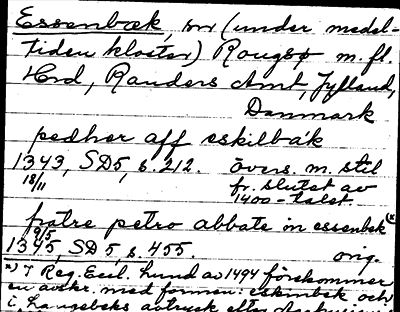 Essenbæk, sn (under medel=
tiden kloster) Rougsø m. fl.
Hrd, Randers Amt, Jylland,
Danmark
pedher aff eskilbäk
1343, SD5, s. 212. övers. m. stil
18/11 fr. slutet av
1400-talet.
fratre petro abbate in essenbek x)
19/5
1345, SD5, s. 455. orig.
x) I Reg. Eccl. Lund av 1494 förekommer
en avskr. med formen: eskinbek och
i Langebeks avtryck efter